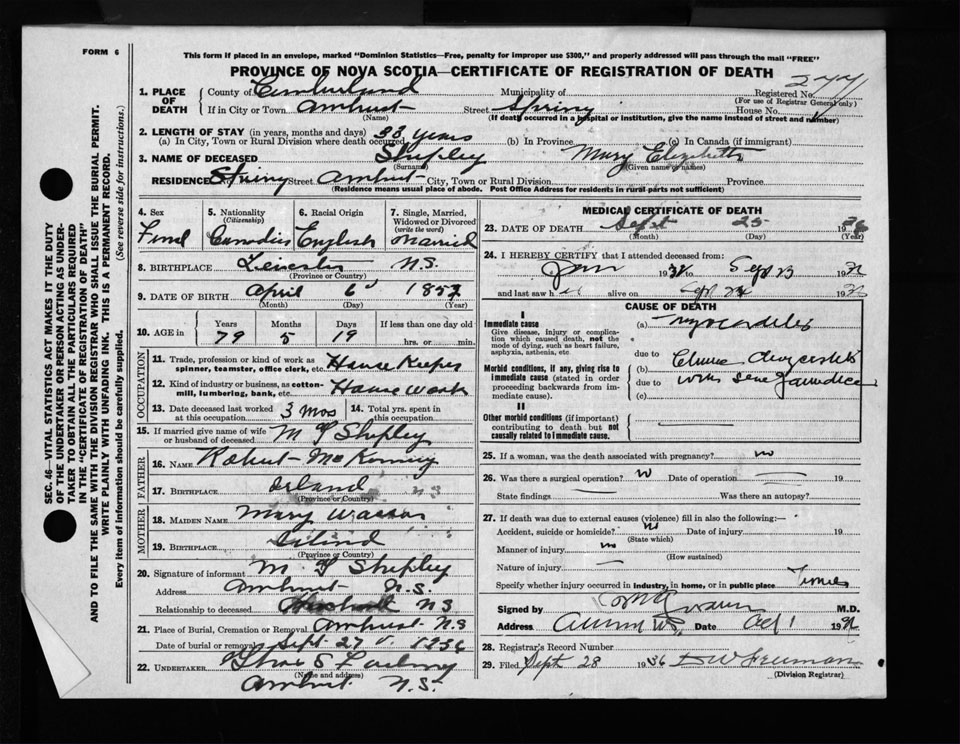 FORM 6
This form if placed in an envelope, marked "Dominion Statistics—Free, penalty for improper use $300," and properly addressed will pass through the mail "FREE"
PROVINCE OF NOVA SCOTIA—CERTIFICATE OF REGISTRATION OF DEATH
1. PLACE OF DEATH
County of Cumberland Municipality of Registered No.
(For use of Registrar General only)
If in City or Town Amherst Street Spring House No.
(Name) (If death occurred in a hospital or institution, give the name instead of street and number)
2. LENGTH OF STAY (in years, months and days) 33 years
(a) In City, Town or Rural Division where death occurred (b) In Province (c) In Canada (if immigrant)
3. NAME OF DECEASED Shepley Mary Elizabeth
(Surname) (Given name or names)
RESIDENCE Spring Street Amherst City, Town or Rural Division Province
(Residence means usual place of abode. Post Office Address for residents in rural parts not sufficient)
4. Sex
5. Nationality (Citizenship)
6. Racial Origin English
7. Single, Married, Widowed or Divorced (write the word) Married
8. BIRTHPLACE Leicester N.S.
(Province or Country)
9. DATE OF BIRTH April 6 1857
(Month) (Day) (Year)
10. AGE in Years Months Days If less than one day old
79 5 19 hrs. or min.
OCCUPATION
11. Trade, profession or kind of work as spinner, teamster, office clerk, etc. House Keeper
12. Kind of industry or business, as cotton-mill, lumbering, bank, etc. House Work
13. Date deceased last worked at this occupation 3 mos
14. Total yrs. spent in this occupation
15. If married give name of wife or husband of deceased Shepley
FATHER
16. NAME Robert McKinney
17. BIRTHPLACE Irland N S
(Province or Country)
MOTHER
18. MAIDEN NAME Mary
19. BIRTHPLACE
(Province or Country)
20. Signature of informant Shepley
Address Amherst N.S.
Relationship to deceased Husband N S
21. Place of Burial, Cremation or Removal Amherst N.S
Date of burial or removal Sept. 27 1936
22. UNDERTAKER
(Name and address)
Amherst N.S.
MEDICAL CERTIFICATE OF DEATH
23. DATE OF DEATH Sept 25 1936
(Month) (Day) (Year)
24. I HEREBY CERTIFY that I attended deceased from:
Jan 19 Sept 23 19
and last saw h alive on Sept 19
CAUSE OF DEATH
I
Immediate cause
Give disease, injury or complication which caused death, not the mode of dying, such as heart failure, asphyxia, asthenia, etc.
(a) Myocarditis
due to
Morbid conditions, if any, giving rise to immediate cause (stated in order proceeding backwards from immediate cause).
(b)
due to
(c)
II
Other morbid conditions (if important) contributing to death but not causally related to immediate cause.
25. If a woman, was the death associated with pregnancy? no
26. Was there a surgical operation? no Date of operation 19
State findings Was there an autopsy?
27. If death was due to external causes (violence) fill in also the following:—
Accident, suicide or homicide? no Date of injury 19
(State which)
Manner of injury
(How sustained)
Nature of injury
Specify whether injury occurred in industry, in home, or in public place
Signed by M.D.
Address Date Oct 1 19
28. Registrar's Record Number
29. Filed Sept 28 1936 Freeman
(Division Registrar)
SEC. 46—VITAL STATISTICS ACT MAKES IT THE DUTY
OF THE UNDERTAKER OR PERSON ACTING AS UNDERTAKER TO OBTAIN ALL THE PARTICULARS REQUIRED
IN THE "CERTIFICATE OF REGISTRATION OF DEATH"
AND TO FILE THE SAME WITH THE DIVISION REGISTRAR WHO SHALL ISSUE THE BURIAL PERMIT.
WRITE PLAINLY WITH UNFADING INK. THIS IS A PERMANENT RECORD.
Every item of information should be carefully supplied. (See reverse side for instructions.)